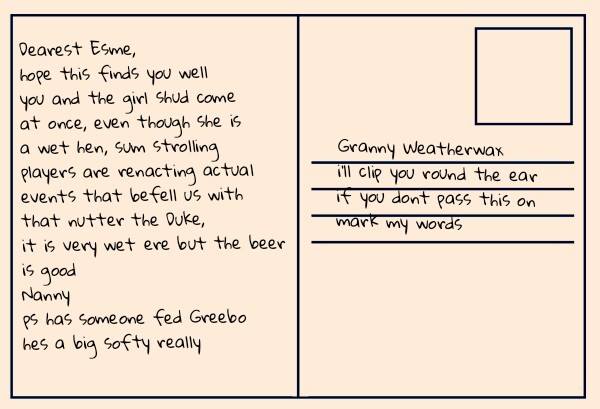 Dearest Esme,
hope this finds you well
you and the girl shud come
at once, even though she is
a wet hen, sum strolling
players are renacting actual
events that befell us with
that nutter the Duke,
it is very wet ere but the beer
is good
Nanny
ps has someone fed Greebo
hes a big softy really
Granny Weatherwax
i'll clip you round the ear
if you dont pass this on
mark my words